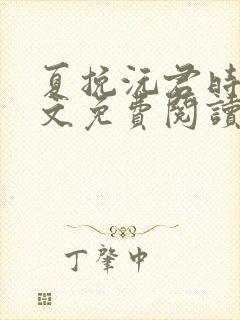 夏挽沅君时
文免費閱讀
丁肇中